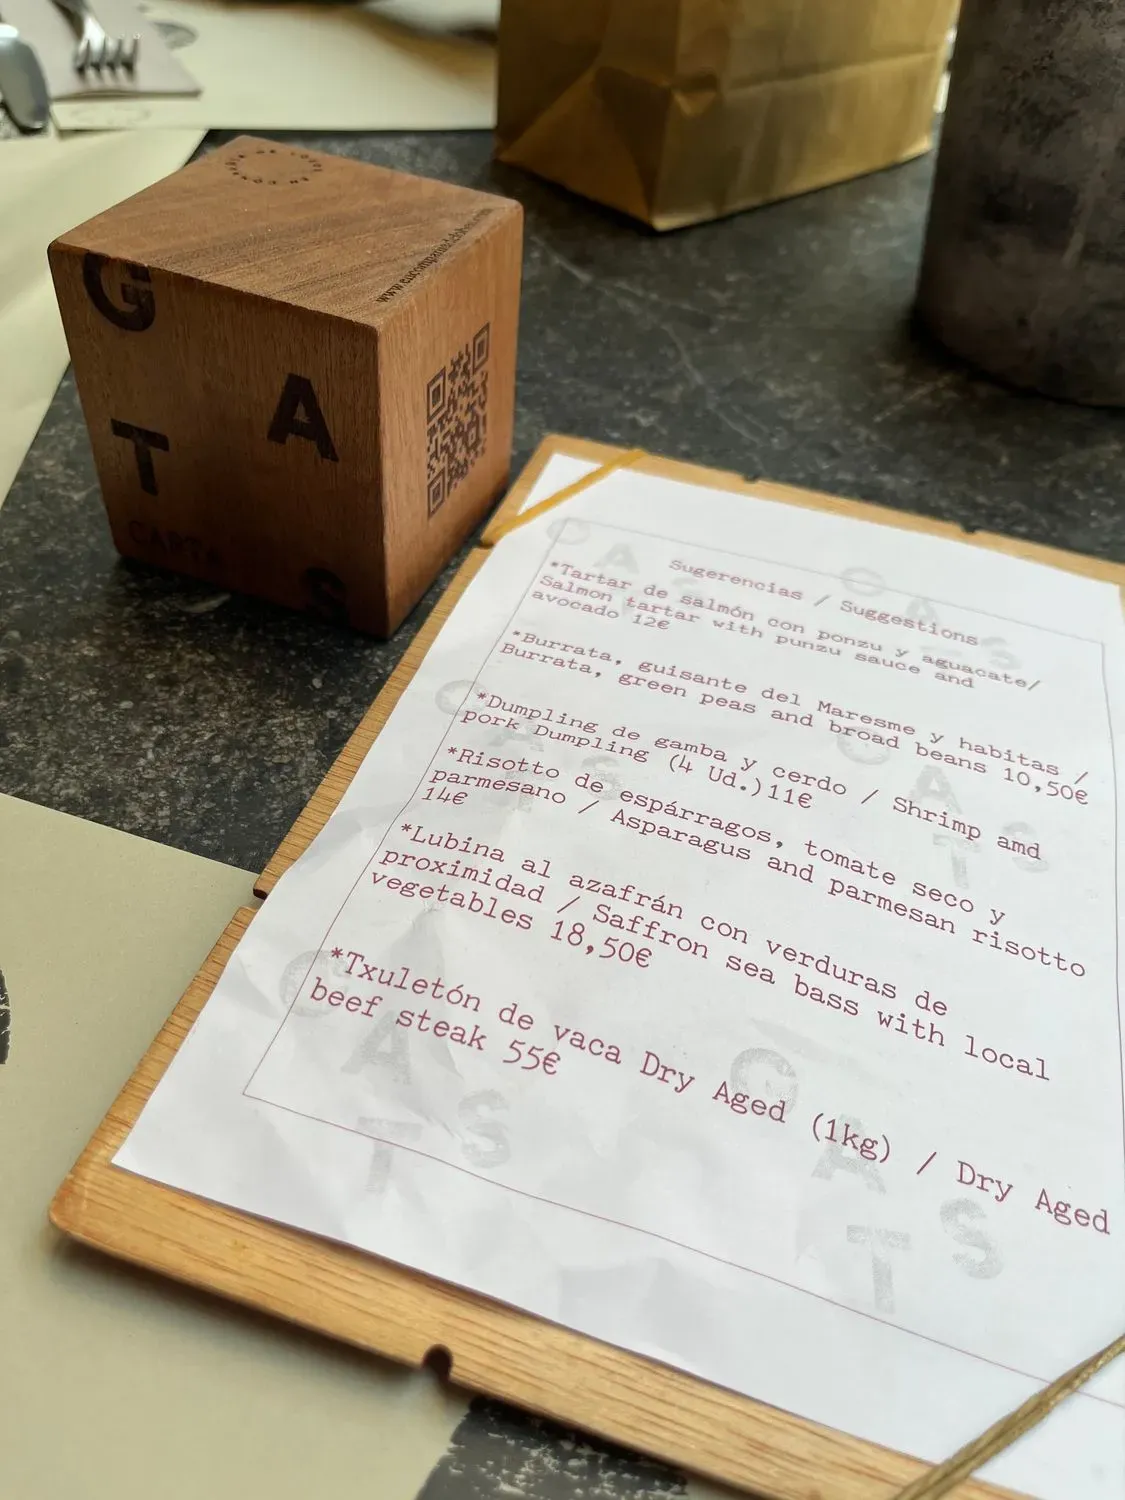 G
A
T
S
CARTA
Sugerencias / Suggestions
*Tartar de salmón con ponzu y aguacate/
Salmon tartar with punzu sauce and
avocado 12€
*Burrata, guisante del Maresme y habitas /
Burrata, green peas and broad beans 10,50€
*Dumpling de gamba y cerdo / Shrimp amd
pork Dumpling (4 Ud.)11€
*Risotto de espárragos, tomate seco y
parmesano / Asparagus and parmesan risotto
14€
*Lubina al azafrán con verduras de
proximidad / Saffron sea bass with local
vegetables 18,50€
*Txuletón de vaca Dry Aged (1kg) / Dry Aged
beef steak 55€